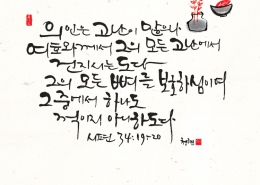 의인은 고난이 많으나
여호와께서 그의 모든 고난에서
건지시는도다
그의 모든 뼈를 보호하심이여
그 중에서 하나도
꺾이지 아니하도다
시편 34:19-20